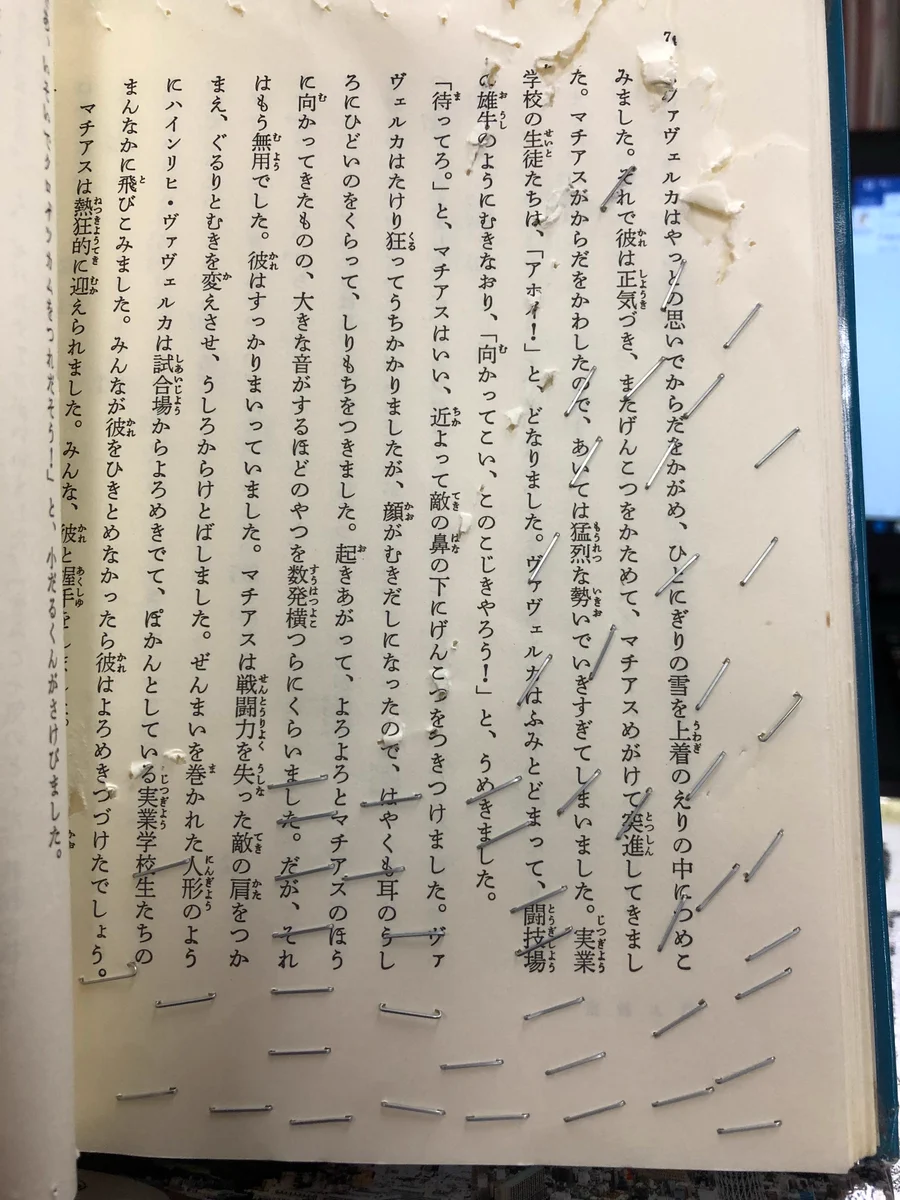 ヴァヴェルカはやっとの思いでからだをかがめ、ひとにぎりの雪を上着のえりの中につめこ
みました。それで彼は正気づき、またげんこつをかためて、マチアスめがけて突進してきまし
た。マチアスがからだをかわしたので、あいては猛烈な勢いでいきすぎてしまいました。実業
学校の生徒たちは、「アホイ！」と、どなりました。ヴァヴェルカはふみとどまって、闘技場
の雄牛のようにむきなおり、「向かってこい、このこじきやろう！」と、うめきました。
「待ってろ。」と、マチアスはいい、近よって敵の鼻の下にげんこつをつきつけました。ヴァ
ヴェルカはたけり狂ってうちかかりましたが、顔がむきだしになったので、はやくも耳のうし
ろにひどいのをくらって、しりもちをつきました。起きあがって、よろよろとマチアスのほう
に向かってきたものの、大きな音がするほどのやつを数発横つらにくらいました。だが、それ
はもう無用でした。彼はすっかりまいっていました。マチアスは戦闘力を失った敵の肩をつか
まえ、ぐるりとむきを変えさせ、うしろからけとばしました。ぜんまいを巻かれた人形のよう
にハインリヒ・ヴァヴェルカは試合場からよろめきでて、ぽかんとしている実業学校生たちの
まんなかに飛びこみました。みんなが彼をひきとめなかったら彼はよろめきつづけたでしょう。
マチアスは熱狂的に迎えられました。みんな、彼と握手を
をつれだそう！」と、小だるくんがさけびました。